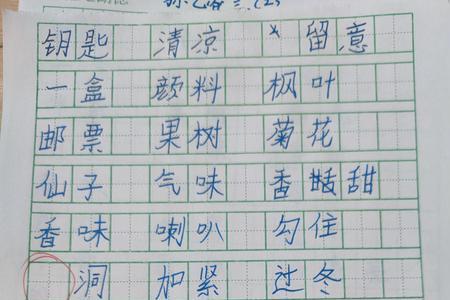 钥匙 清凉 留意
一盒 颜料 枫叶
邮票 果树 菊花
仙子 气味 香甜
香味 喇叭 勾住
洞 加紧 过冬